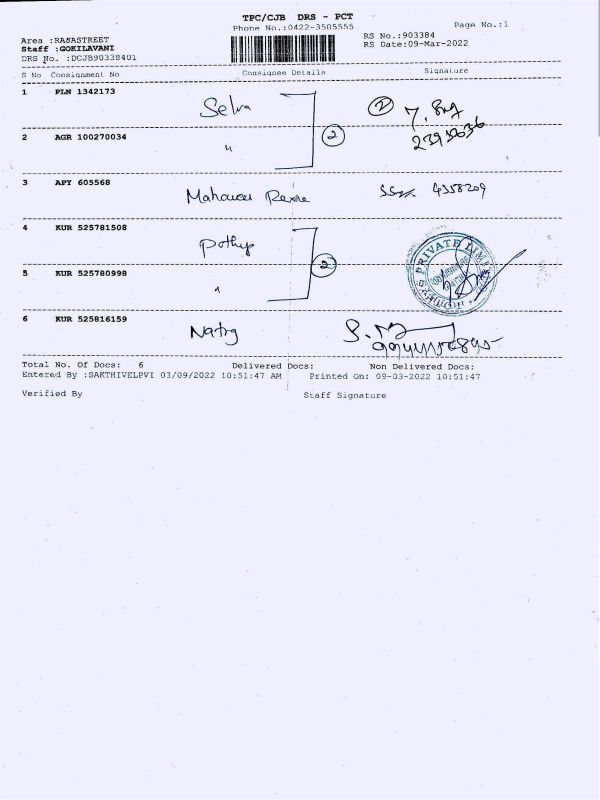 TPC/CJB DRS - PCT
Phone No.:0422-3505555
Page No.:1
Area :RAJASTREET
RS No.:903384
Staff :GOKILAVANI
RS Date:09-Mar-2022
DRS No. :DCJB90338401
S No Consignment No Consignee Details Signature
1 PLN 1342173 Selva 2
2 AGR 100270034 " 2
3 APY 605568 4358209
4 KUR 525781508 Pothys
5 KUR 525780998 " 2
PRIVATE LIMI
6 KUR 525816159
Total No. Of Docs: 6 Delivered Docs: Non Delivered Docs:
Entered By :SAKTHIVELPVI 03/09/2022 10:51:47 AM Printed On: 09-03-2022 10:51:47
Verified By Staff Signature